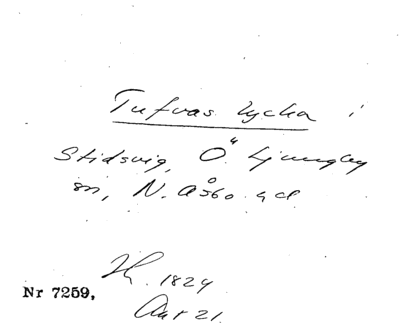 Tufvas Lycka i
Stidsvig, Ö. Ljungby
sn, N. Åsbo hd
1824
Nr 7259,
Akt 21.